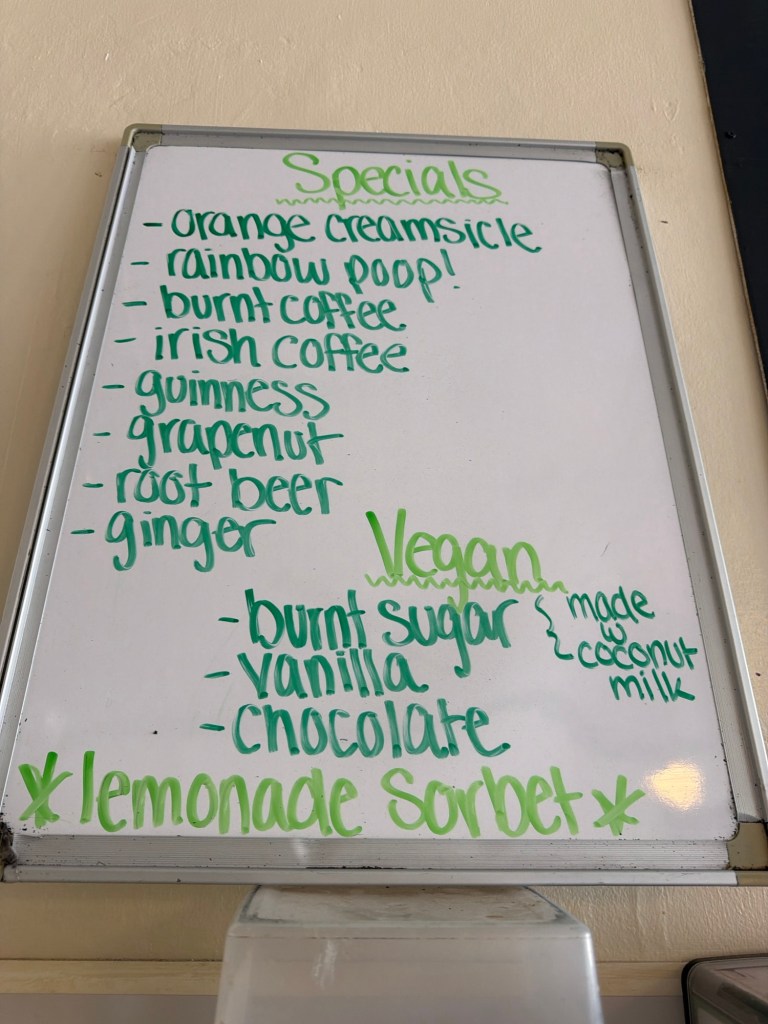 Specials
- orange creamsicle
- rainbow poop!
- burnt coffee
- irish coffee
- guinness
- grapenut
- root beer
- ginger
Vegan
- burnt sugar
- vanilla
- chocolate
made
w
coconut
milk
*lemonade sorbet*